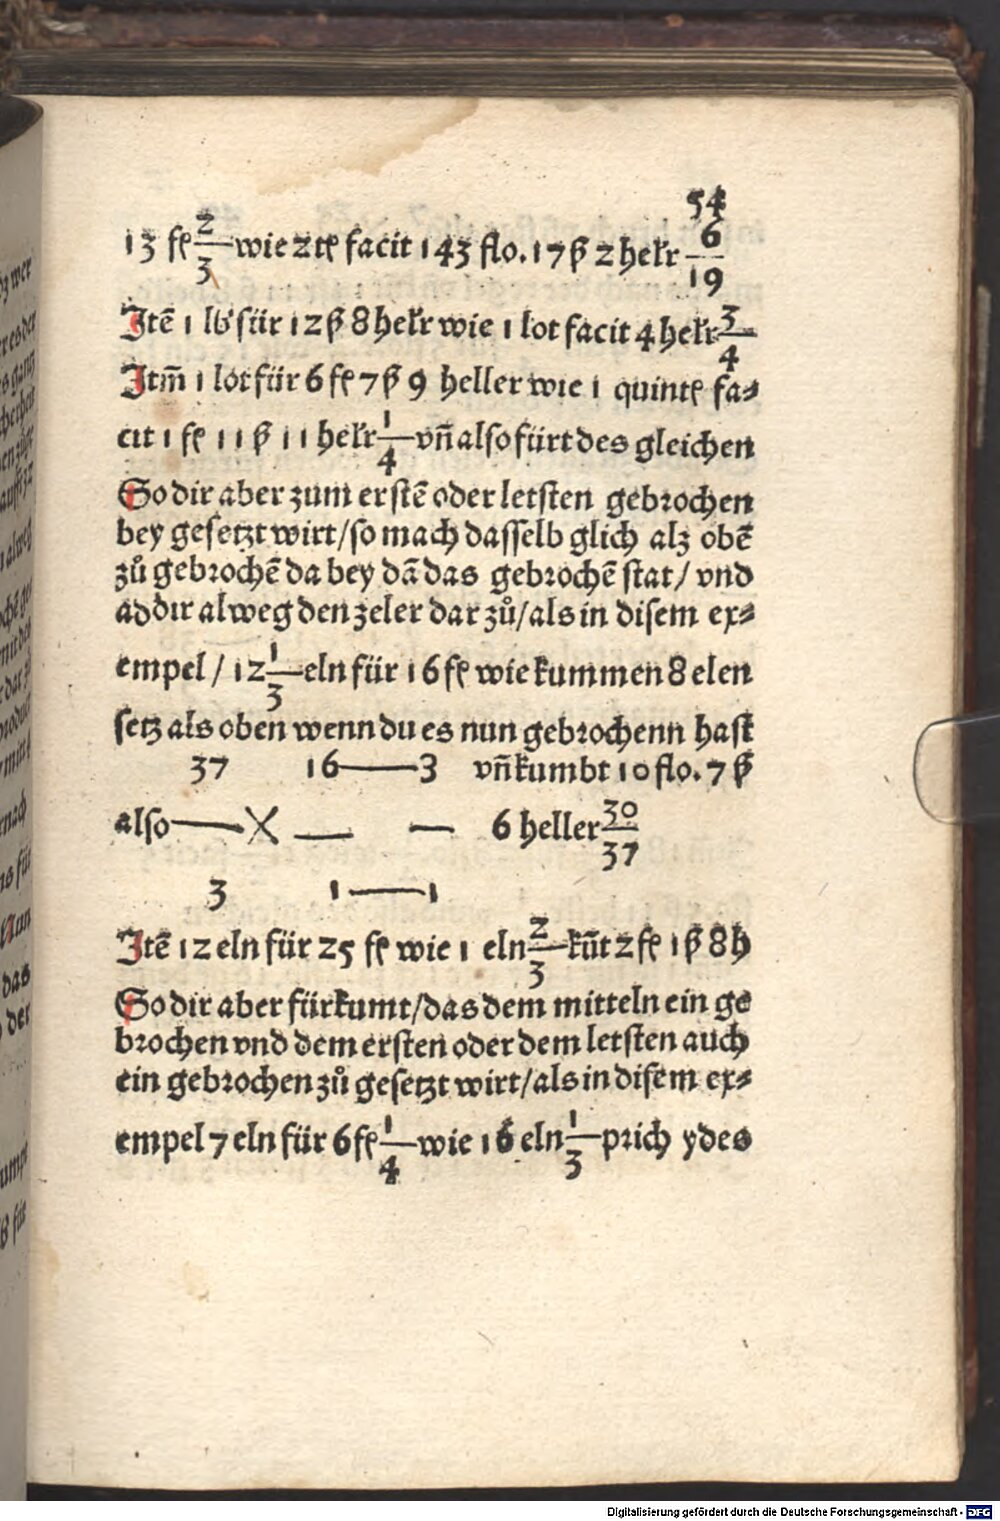 54
13 fl 2/3 wie 2 tl facit 143 flo. 17 ß 2 helr 6/19
Itē 1 lb für 12 ß 8 helr wie 1 lot facit 4 helr 3/4
Itm̄ 1 lot für 6 fl 7 ß 9 heller wie 1 quintl fa⸗
cit 1 fl 11 ß 11 helr 1/4 vñ also fürt des gleichen
So dir aber zum erstē oder letsten gebrochen
bey gesetzt wirt/so mach dasselb glich alz obē
zů gebrochē da bey dā das gebrochē stat/ vnd
addir alweg den zeler dar zů/als in disem ex⸗
empel/ 12 1/3 eln für 16 fl wie kummen 8 elen
setz als oben wenn du es nun gebrochenn hast
37 16—3 vñ kumbt 10 flo. 7 ß
also—X — — 6 heller 30/37
3 1—1
Itē 12 eln für 25 fl wie 1 eln 2/3 kūt 2 fl 1 ß 8 h
So dir aber fürkumt/das dem mitteln ein ge
brochen vnd dem ersten oder dem letsten auch
ein gebrochen zů gesetzt wirt/als in disem ex⸗
empel 7 eln für 6 fl 1/4 wie 16 eln 1/3 prich ydes
Digitalisierung gefördert durch die Deutsche Forschungsgemeinschaft - DFG